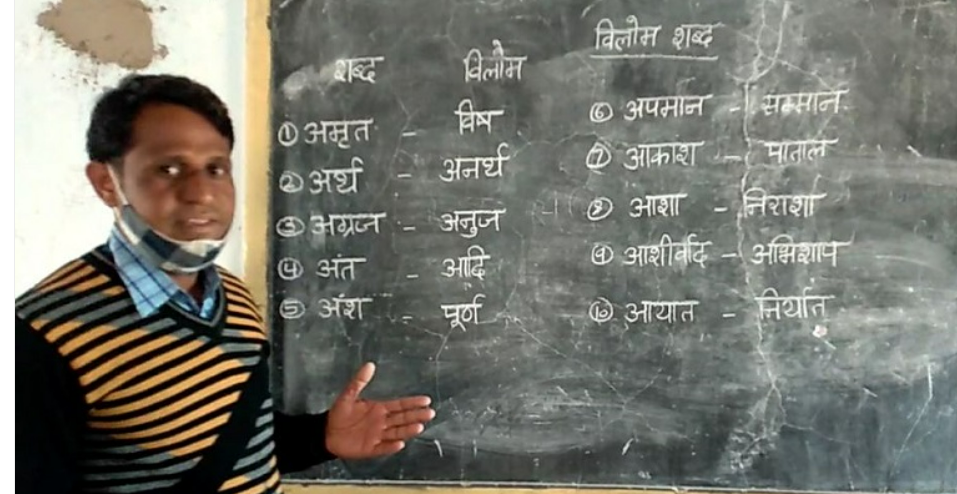 विलोम शब्द
शब्द विलोम
① अमृत - विष
② अर्थ - अनर्थ
③ अग्रज - अनुज
④ अंत - आदि
⑤ अंश - पूर्ण
⑥ अपमान - सम्मान
⑦ आकाश - पाताल
⑧ आशा - निराशा
⑨ आशीर्वाद - अभिशाप
⑩ आयात - निर्यात